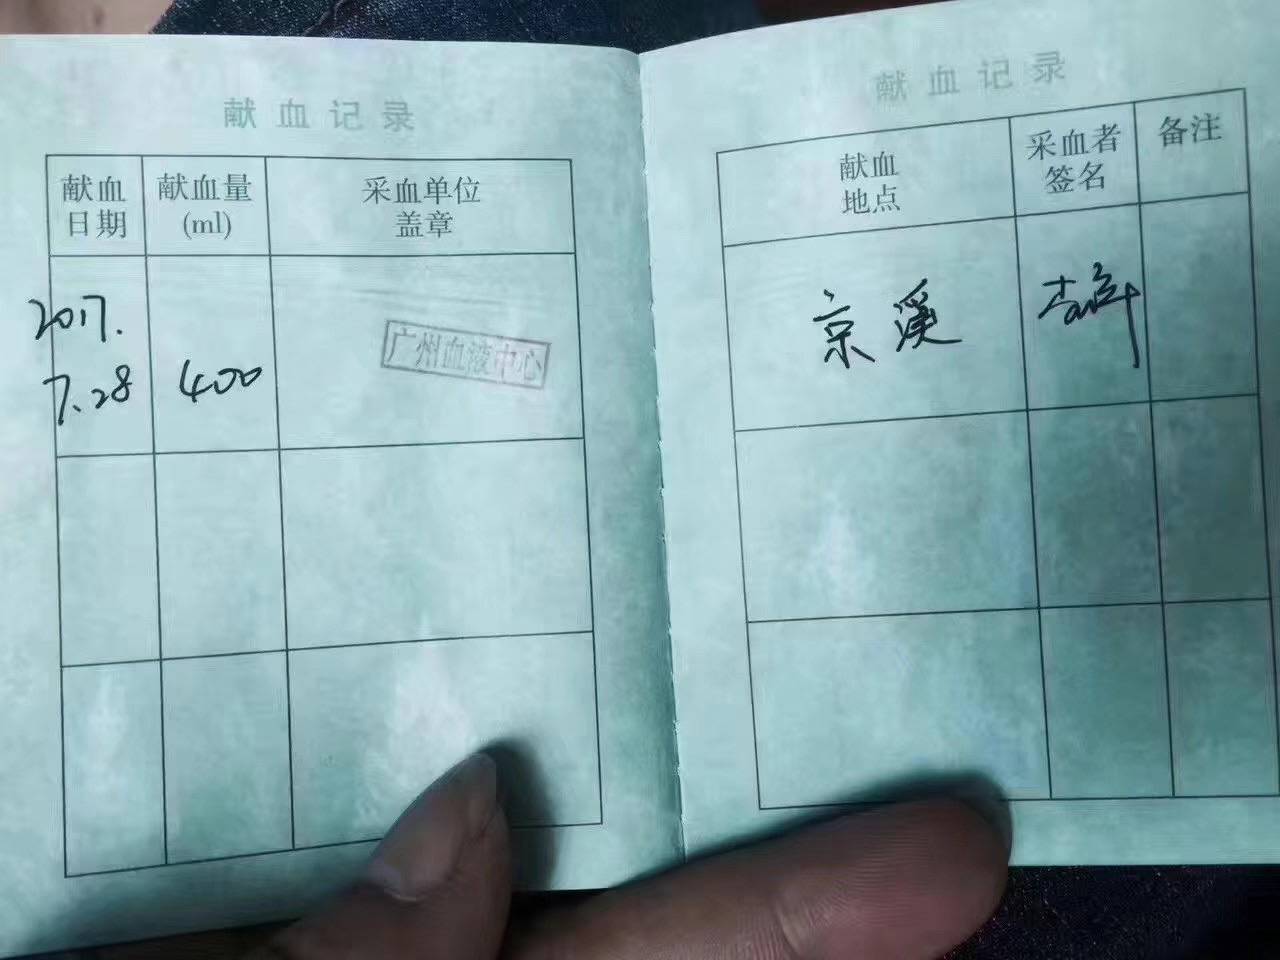 献血记录
献血日期
献血量(ml)
采血单位盖章
2017.
7.28
400
广州血液中心
献血记录
献血地点
采血者签名
备注
京溪